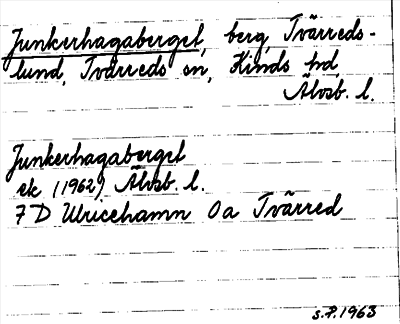 Junkerhagaberget, berg, Tvärreds-
lund, Tvärreds sn, Kinds hd
Älvsb. l.
Junkerhagaberget
ek (1962) Älvsb. l.
7 D Ulricehamn 0a Tvärred
s.P. 1963